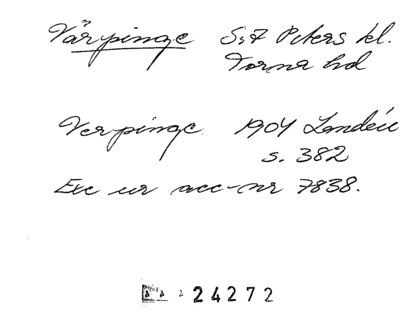 Värpinge S:t Peters kl.
Torna hd
Verpinge. 1904 Landéu
s. 382
Exc ur acc-nr 7838.
24272